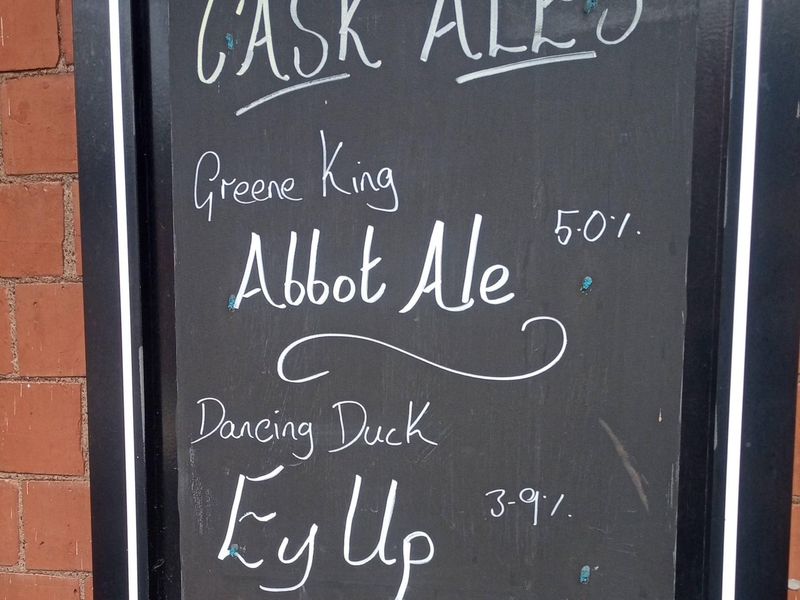 CASK ALES
Greene King
Abbot Ale 5.0%
Dancing Duck
Ey Up 3.9%